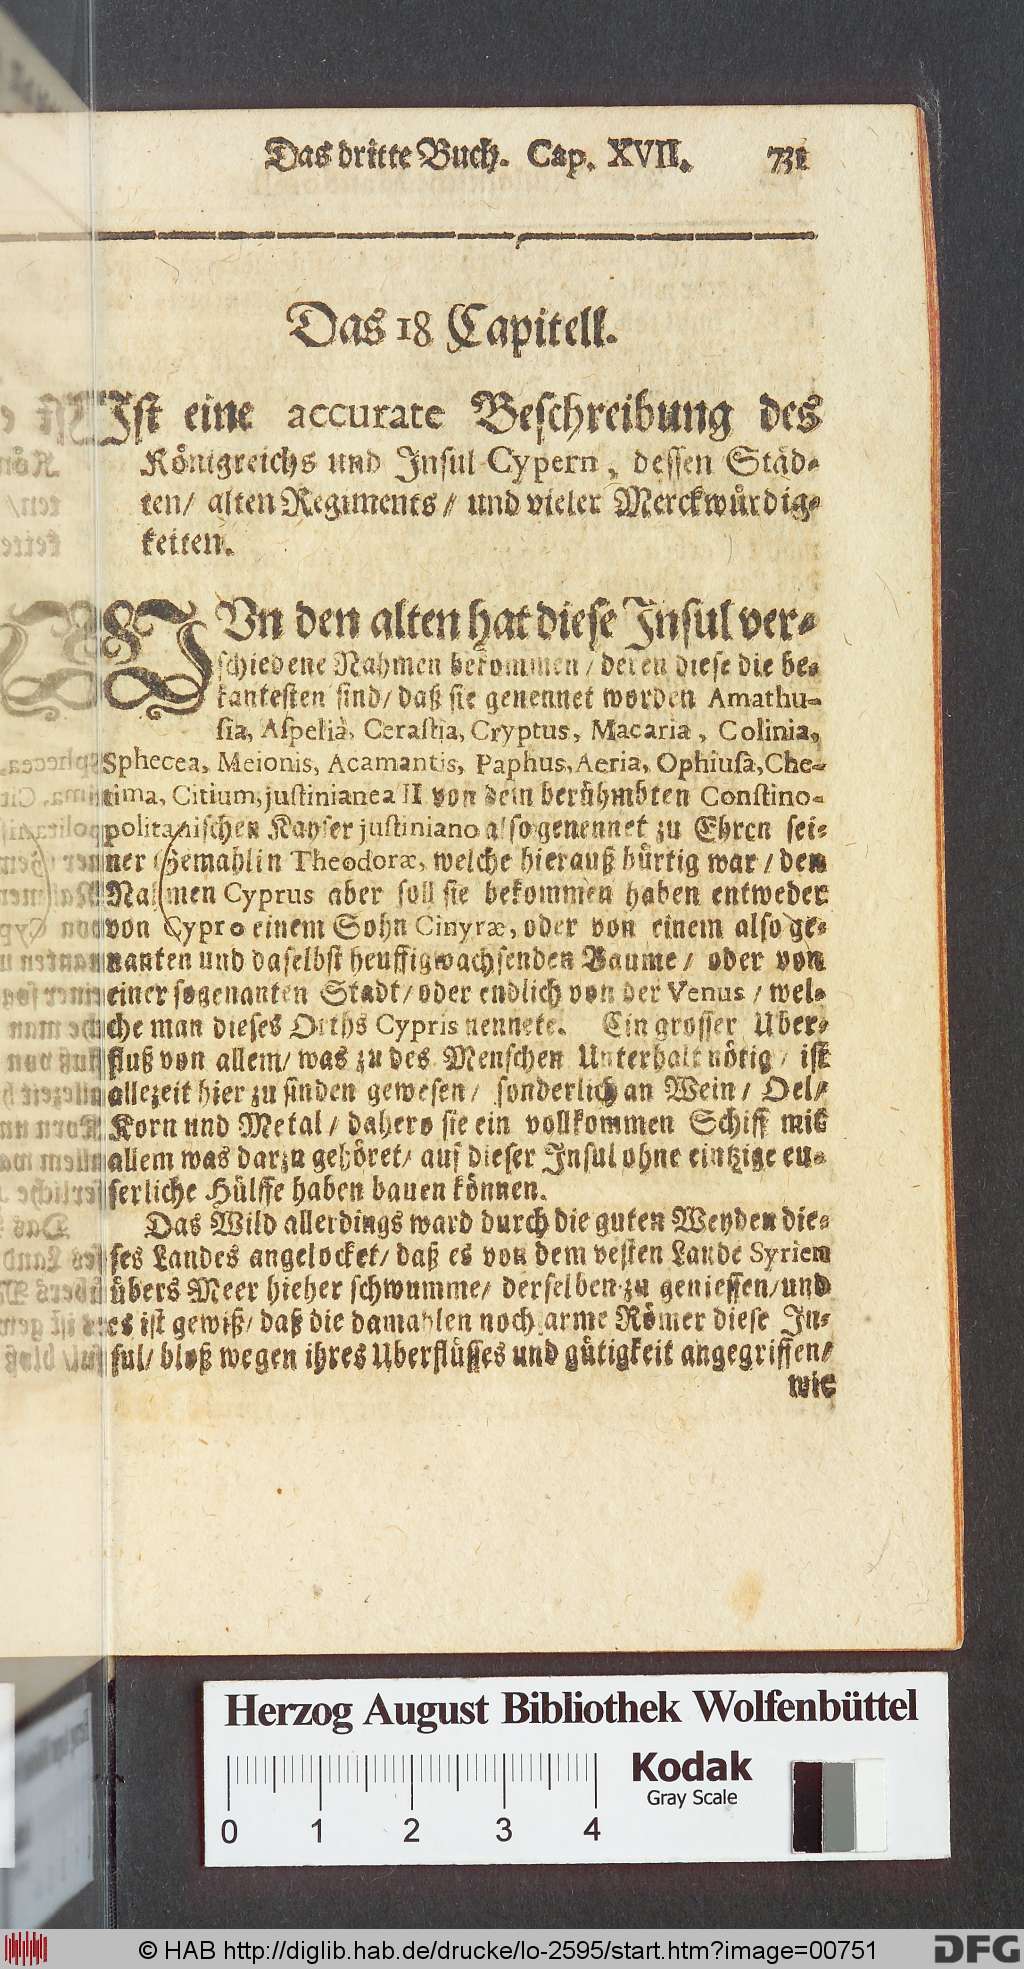 Das dritte Buch. Cap. XVII. 731
Das 18 Capitell.
Ist eine accurate Beschreibung des
Königreichs und Insul Cypern, dessen Städ-
ten/ alten Regiments/ und vieler Merckwürdig-
keiten.
VOn den alten hat diese Insul ver-
schiedene Nahmen bekommen/ deren diese die be-
kantesten sind/ daß sie genennet worden Amathu-
sia, Aspelia, Cerastia, Cryptus, Macaria, Colinia,
Sphecea, Meionis, Acamantis, Paphus, Aeria, Ophiusa, Che-
tima, Citium, justinianea II von dem berühmbten Constino-
politanischen Kayser justiniano also genennet zu Ehren sei-
ner Gemahlin Theodoræ, welche hierauß bürtig war/ den
Nahmen Cyprus aber soll sie bekommen haben entweder
von Cypro einem Sohn Cinyræ, oder von einem also ge-
nanten und daselbst heuffig wachsenden Baume/ oder von
einer sogenanten Stadt/ oder endlich von der Venus/ wel-
che man dieses Orths Cypris nennete. Ein grosser Uber-
fluß von allem/ was zu des Menschen Unterhalt nötig/ ist
allezeit hier zu finden gewesen/ sonderlich an Wein/ Oel/
Korn und Metal/ dahero sie ein vollkommen Schiff mit
allem was darzu gehöret/ auf dieser Insul ohne eintzige eu-
serliche Hülffe haben bauen können.
Das Wild allerdings ward durch die guten Weyden die-
ses Landes angelocket/ daß es von dem vesten Lande Syrien
übers Meer hieher schwumme/ derselben zu geniessen/ und
es ist gewiß/ daß die damahlen noch arme Römer diese In-
sul/ bloß wegen ihres Uberflusses und gütigkeit angegriffen/
wie
Herzog August Bibliothek Wolfenbüttel
Kodak
Gray Scale
0 1 2 3 4
© HAB http://diglib.hab.de/drucke/lo-2595/start.htm?image=00751
DFG